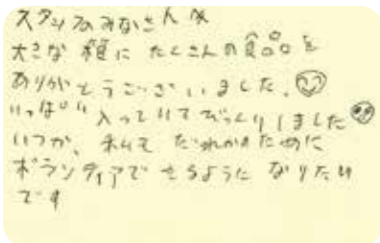 スタッフのみなさんへ
大きな箱に たくさんの食品を
ありがとうございました。
いっぱい 入っていてびっくりしました
いつか、私もだれかのために
ボランティアできるように なりたい
です